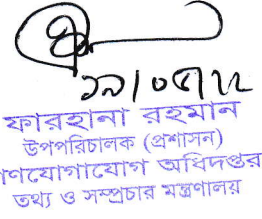 ১৯/০৫/২২
ফারহানা রহমান
উপপরিচালক (প্রশাসন)
গণযোগাযোগ অধিদপ্তর
তথ্য ও সম্প্রচার মন্ত্রণালয়